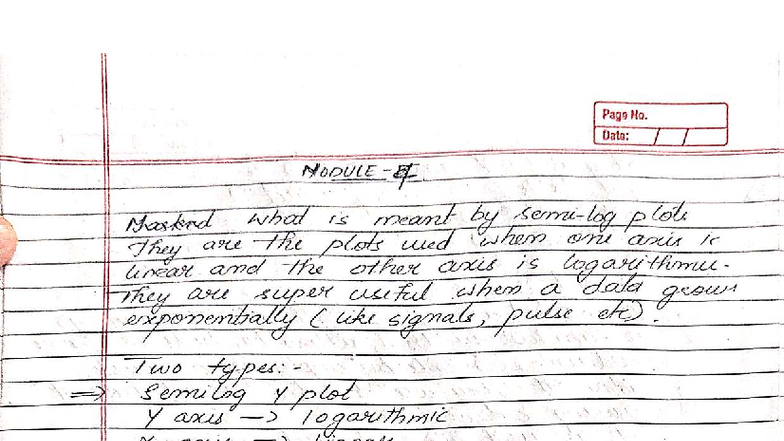 Page No.
Date: / /
MODULE -
what is meant by semi-log plots
They are the plots used when one axis is
linear and the other axis is logarithmic.
They are super useful when a data grows
exponentially (like signals, pulse etc).
Two types:-
⇒ Semilog Y plot
Y axis → logarithmic